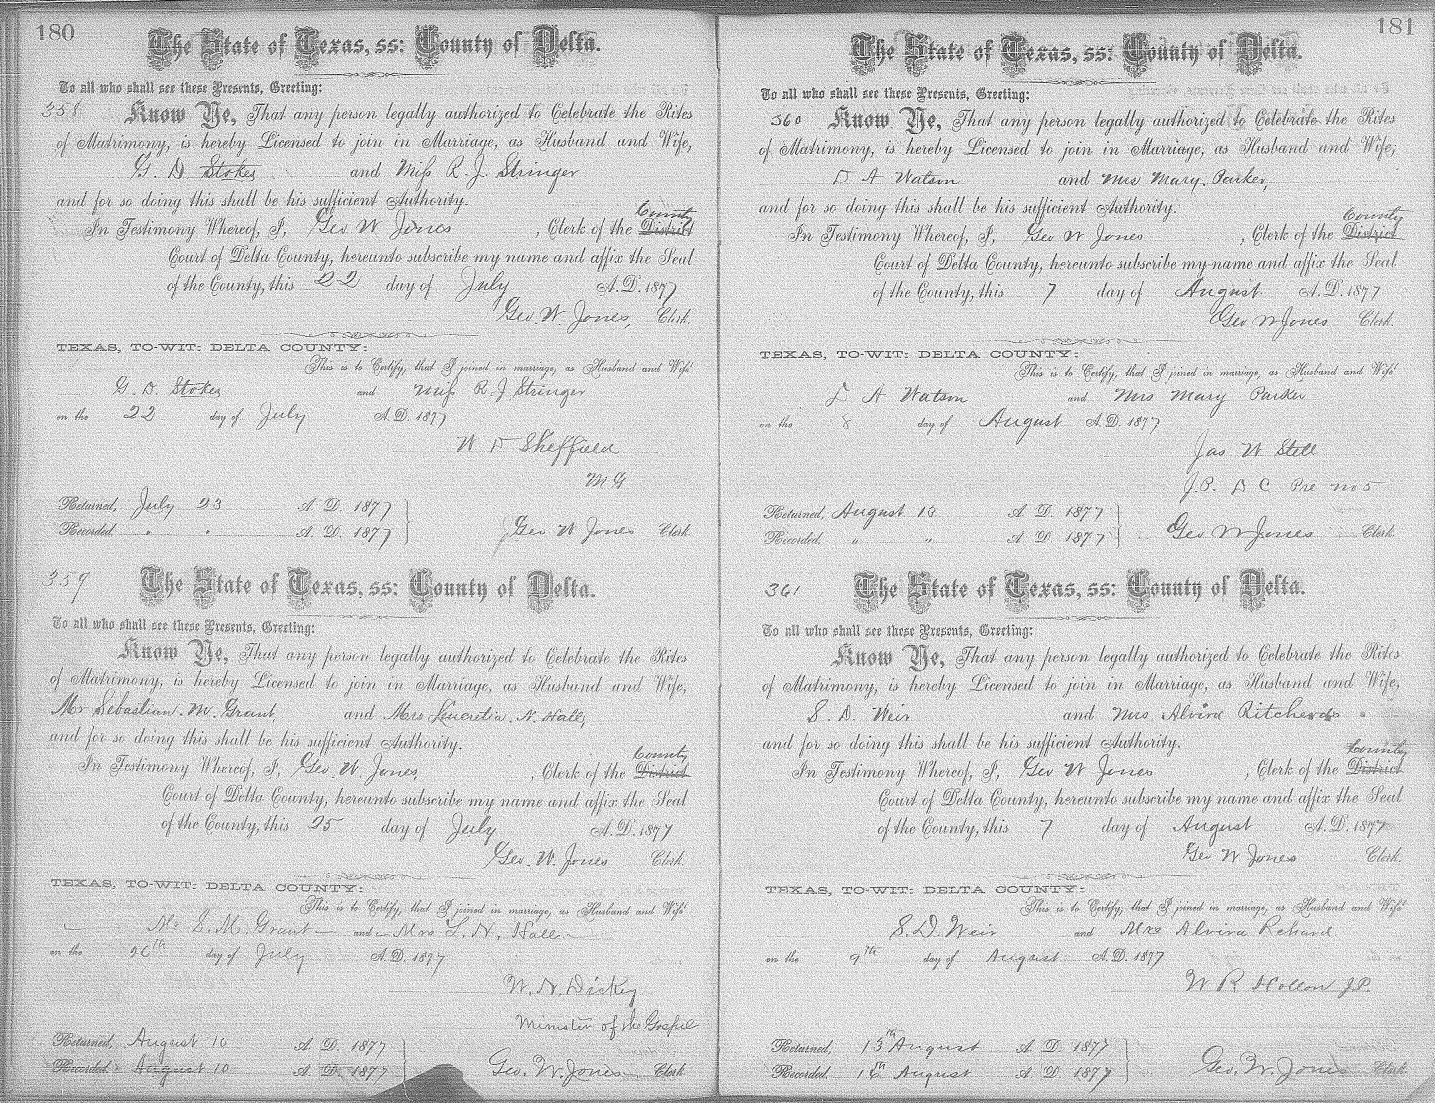 180
The State of Texas, ss: County of Delta.
To all who shall see these Presents, Greeting:
358
Know Ye, That any person legally authorized to Celebrate the Rites
of Matrimony, is hereby Licensed to join in Marriage, as Husband and Wife,
G. D Stokes and Miss R. J. Stringer
and for so doing this shall be his sufficient Authority.
In Testimony Whereof, I, Geo W Jones, Clerk of the District County
Court of Delta County, hereunto subscribe my name and affix the Seal
of the County, this 22 day of July A.D. 1877
Geo. W Jones, Clerk.
TEXAS, TO-WIT: DELTA COUNTY:
This is to Certify, that I joined in marriage, as Husband and Wife
G. D. Stokes and Miss R. J Stringer
on the 22 day of July A.D. 1877
W D Sheffield
M G
Returned, July 23 A. D. 1877
Recorded " " A. D. 1877
Geo W Jones Clerk
359
The State of Texas, ss: County of Delta.
To all who shall see these Presents, Greeting:
Know Ye, That any person legally authorized to Celebrate the Rites
of Matrimony, is hereby Licensed to join in Marriage, as Husband and Wife,
Mr Sebastian. M. Grant and Mrs Lucretia. N. Hall,
and for so doing this shall be his sufficient Authority.
In Testimony Whereof, I, Geo. W. Jones, Clerk of the District County
Court of Delta County, hereunto subscribe my name and affix the Seal
of the County, this 25 day of July A.D. 1877
Geo. W. Jones Clerk.
TEXAS, TO-WIT: DELTA COUNTY:
This is to Certify, that I joined in marriage, as Husband and Wife
Mr S. M. Grant and Mrs L. N. Hall
on the 26th day of July A.D. 1877
W. N. Dickey
Minister of the Gospel
Returned, August 10 A. D. 1877
Recorded August 10 A. D. 1877
Geo. W. Jones Clerk
181
The State of Texas, ss: County of Delta.
To all who shall see these Presents, Greeting:
360
Know Ye, That any person legally authorized to Celebrate the Rites
of Matrimony, is hereby Licensed to join in Marriage, as Husband and Wife,
D A Watson and Mrs Mary. Parker,
and for so doing this shall be his sufficient Authority.
In Testimony Whereof, I, Geo W Jones, Clerk of the District County
Court of Delta County, hereunto subscribe my name and affix the Seal
of the County, this 7 day of August A.D. 1877
Geo W Jones Clerk.
TEXAS, TO-WIT: DELTA COUNTY:
This is to Certify, that I joined in marriage, as Husband and Wife
A Watson and Mrs Mary Parker
on the 8 day of August A.D. 1877
Jas W Stell
J.P. D C Pre no 5
Returned, August A. D. 1877
Recorded. " " A. D. 1877
Geo W Jones Clerk.
361
The State of Texas, ss: County of Delta.
To all who shall see these Presents, Greeting:
Know Ye, That any person legally authorized to Celebrate the Rites
of Matrimony, is hereby Licensed to join in Marriage, as Husband and Wife,
S. D. Weir and Mrs Alvira
and for so doing this shall be his sufficient Authority.
In Testimony Whereof, I, Geo W Jones, Clerk of the District County
Court of Delta County, hereunto subscribe my name and affix the Seal
of the County, this 7 day of August A.D. 1877
Geo W Jones Clerk.
TEXAS, TO-WIT: DELTA COUNTY:
This is to Certify, that I joined in marriage, as Husband and Wife
S. D. Weir and Mrs Alvira
on the 9th day of August A.D. 1877
W R Hollon J.P.
Returned, 13th August A. D. 1877
Recorded. August A. D. 1877
Geo. W. Jones Clerk